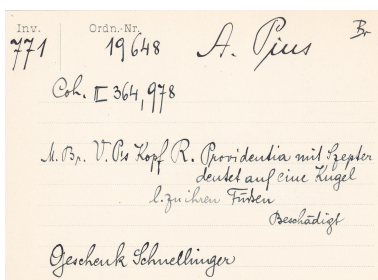 Inv. Ordn.-Nr.
771 19648 A. Pius Br
Coh. II 364,978
M. Br. V. Ps Kopf R. Providentia mit Szepter
deutet auf eine Kugel
l. zu ihren Füssen
Beschädigt
Geschenk Schnellinger